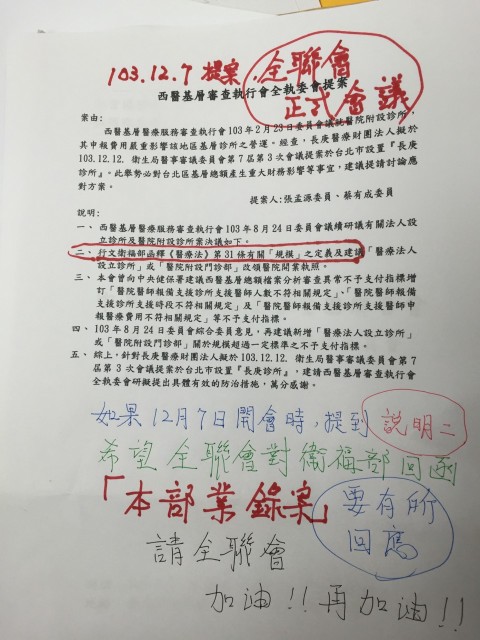 103.12.7 提案. 全聯會
正式會議
西醫基層審查執行會全執委會提案
案由:
西醫基層醫療服務審查執行會 103 年 2 月 23 日委員會議統醫院附設診所，
其申報費用嚴重影響該地區基層診所之營運。經查，長庚醫療財團法人擬於
103.12.12. 衛生局醫事審議委員會第 7 屆第 3 次會議提案於台北市設置『長庚
診所』。此舉勢必對台北區基層總額產生重大財務影響等事宜，建議提請討論應
對方案。
提案人:張孟源委員、蔡有成委員
說明:
一、西醫基層醫療服務審查執行會 103 年 8 月 24 日委員會議續研議有關法人設
立診所及醫院附設診所案決議如下。
二、行文衛福部函釋《醫療法》第 31 條有關「規模」之定義及建議「醫療法人
設立診所」或「醫院附設門診部」改領醫院開業執照。
三、本會曾向中央健保署建議西醫基層總額檔案分析審查異常不予支付指標增
訂「醫院醫師報備支援診所支援醫師人數不符相關規定」、「醫院醫師報備
支援診所支援時段不符相關規定」及「醫院醫師報備支援診所支援醫師申
報醫療費用不符相關規定」等不予支付指標。
四、103 年 8 月 24 日委員會綜合委員意見，再建議新增「醫療法人設立診所」
或「醫院附設門診部」關於規模超過一定標準之不予支付指標。
五、綜上，針對長庚醫療財團法人擬於 103.12.12. 衛生局醫事審議委員會第 7
屆第 3 次會議提案於台北市設置『長庚診所』，建請西醫基層審查執行會
全執委會研擬提出具體有效的防治措施，萬分感謝。
如果12月7日開會時，提到 說明二
希望全聯會對衛福部回函
「本部業錄案」 要有所
回應
請全聯會
加油!! 再加油!!